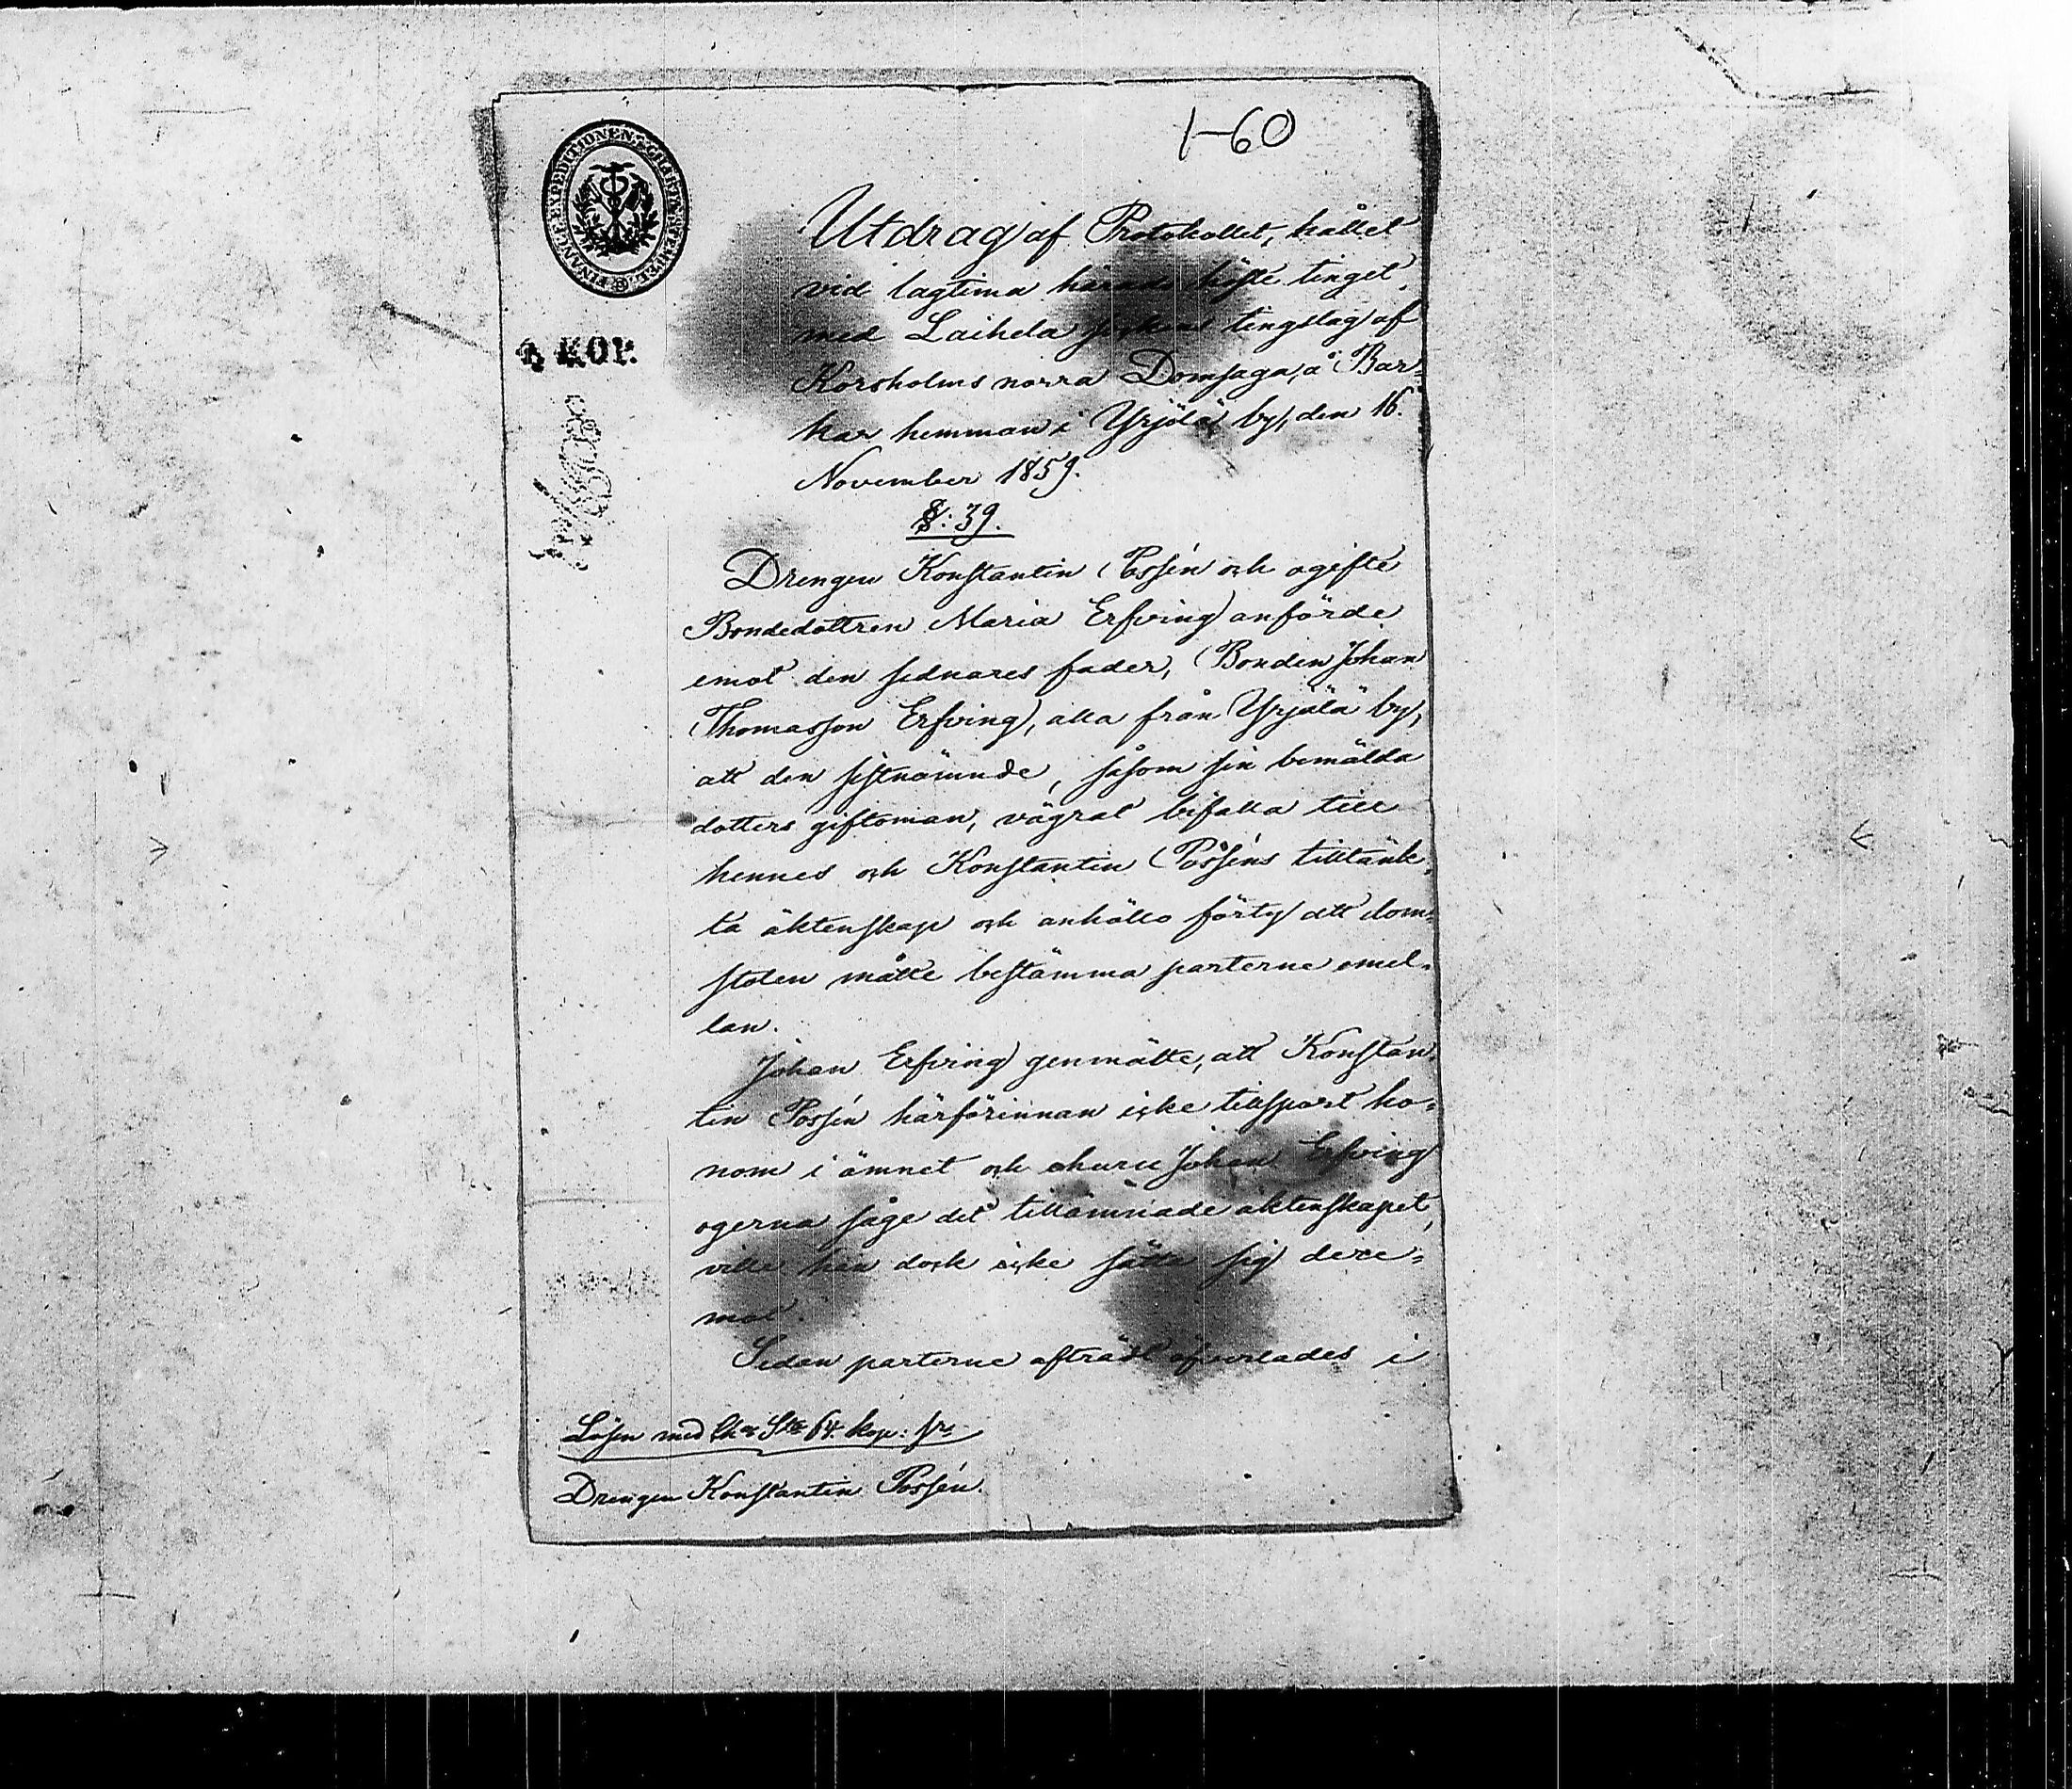 1-60
FINANCE EXPEDITIONEN
KOP.
Utdrag af Protokollet, hållet
vid lagtima härads höste tinget
med Laihela sockens tingslag af
Korsholms norra Domsaga, å Bar-
kar hemman i Yrjälä by, den 16.
November 1859.
§: 39.
Drengen Konstantin Possén och ogifte
Bondedottren Maria Erfving anförde
emot den sednares fader, Bonden Johan
Thomasson Erfving, alla från Yrjälä by,
att den sistnämnde, såsom sin bemälda
dotters giftoman, vägrat bifalla till
hennes och Konstantin Posséns tilltänk-
ta äktenskap och anhöllo förty att dom-
stolen måtte bestämma parterne emel-
lan.
Johan Erfving genmälte, att Konstan-
tin Possén härförinnan icke tillsport ho-
nom i ämnet och ehuru Johan Erfving
ogerna såge det tillämnade äktenskapet,
ville han dock icke sätta sig dere-
mot.
Sedan parterne afträdt öfverlades i
Lösen med Cha Sta 64 kop: sr
Drengen Konstantin Possén.